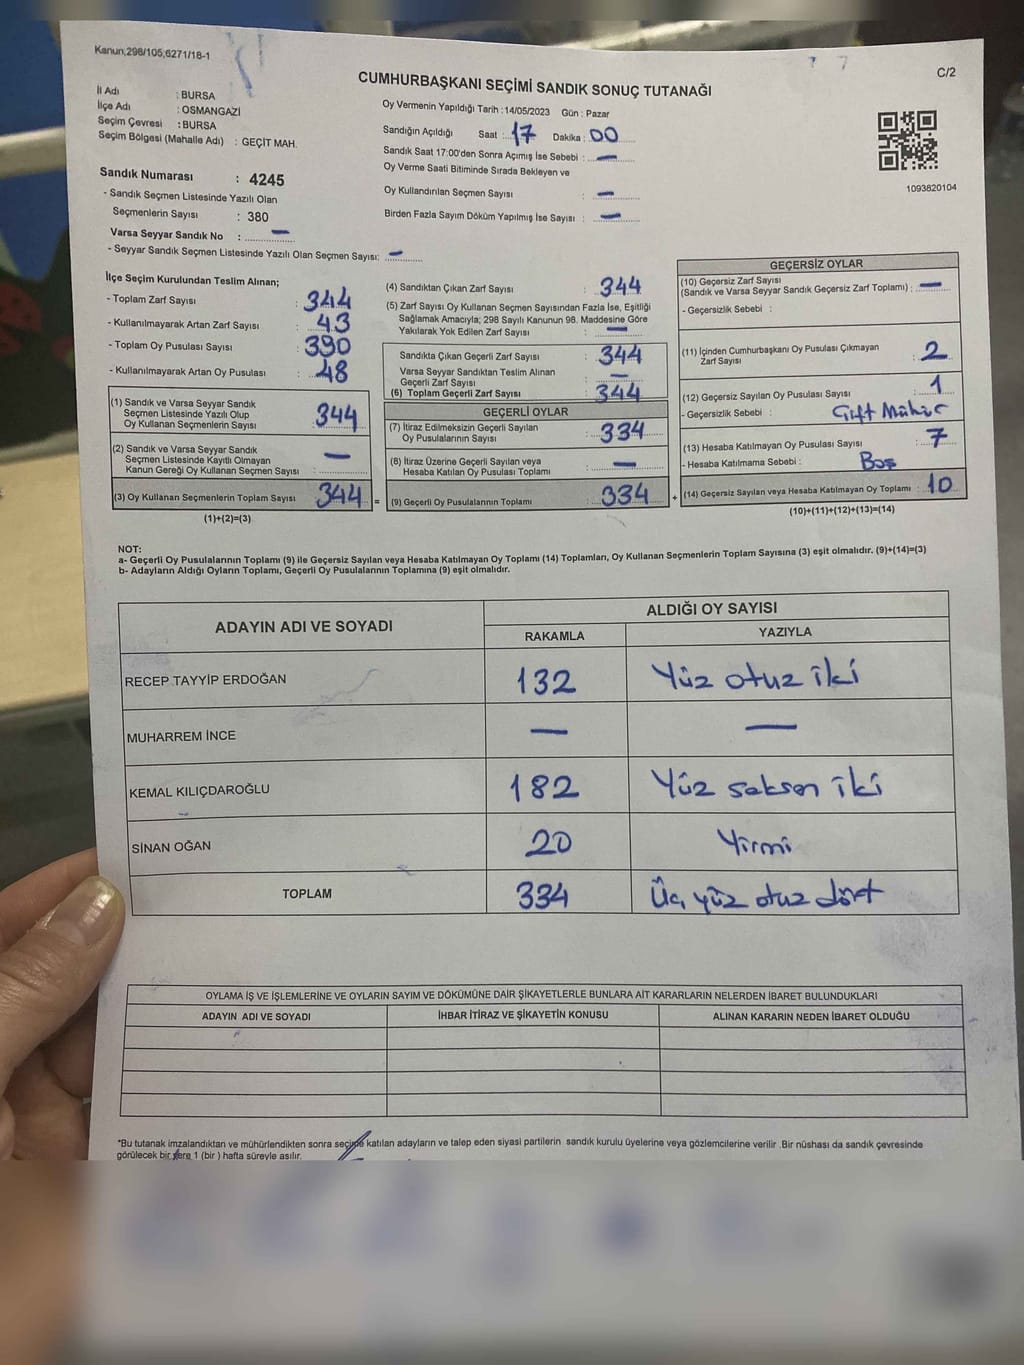 Kanun,298/105,6271/18-1
C/2
CUMHURBAŞKANI SEÇİMİ SANDIK SONUÇ TUTANAĞI
İl Adı : BURSA
İlçe Adı : OSMANGAZİ
Seçim Çevresi : BURSA
Seçim Bölgesi (Mahalle Adı) : GEÇİT MAH.
Sandık Numarası : 4245
- Sandık Seçmen Listesinde Yazılı Olan
Seçmenlerin Sayısı : 380
Varsa Seyyar Sandık No : —
- Seyyar Sandık Seçmen Listesinde Yazılı Olan Seçmen Sayısı: —
Oy Vermenin Yapıldığı Tarih : 14/05/2023 Gün : Pazar
Sandığın Açıldığı Saat : 17 Dakika : 00
Sandık Saat 17:00'den Sonra Açımış İse Sebebi : —
Oy Verme Saati Bitiminde Sırada Bekleyen ve
Oy Kullandırılan Seçmen Sayısı : —
Birden Fazla Sayım Döküm Yapılmış İse Sayısı : —
1093820104
İlçe Seçim Kurulundan Teslim Alınan;
- Toplam Zarf Sayısı : 344
- Kullanılmayarak Artan Zarf Sayısı : 43
- Toplam Oy Pusulası Sayısı : 390
- Kullanılmayarak Artan Oy Pusulası : 48
(1) Sandık ve Varsa Seyyar Sandık
Seçmen Listesinde Yazılı Olup
Oy Kullanan Seçmenlerin Sayısı : 344
(2) Sandık ve Varsa Seyyar Sandık
Seçmen Listesinde Kayıtlı Olmayan
Kanun Gereği Oy Kullanan Seçmen Sayısı : —
(3) Oy Kullanan Seçmenlerin Toplam Sayısı : 344 =
(1)+(2)=(3)
(4) Sandıktan Çıkan Zarf Sayısı : 344
(5) Zarf Sayısı Oy Kullanan Seçmen Sayısından Fazla İse, Eşitliği
Sağlamak Amacıyla; 298 Sayılı Kanunun 98. Maddesine Göre
Yakılarak Yok Edilen Zarf Sayısı : —
Sandıkta Çıkan Geçerli Zarf Sayısı : 344
Varsa Seyyar Sandıktan Teslim Alınan
Geçerli Zarf Sayısı : —
(6) Toplam Geçerli Zarf Sayısı : 344
GEÇERLİ OYLAR
(7) İtiraz Edilmeksizin Geçerli Sayılan
Oy Pusulalarının Sayısı : 334
(8) İtiraz Üzerine Geçerli Sayılan veya
Hesaba Katılan Oy Pusulası Toplamı : —
(9) Geçerli Oy Pusulalarının Toplamı : 334 +
GEÇERSİZ OYLAR
(10) Geçersiz Zarf Sayısı
(Sandık ve Varsa Seyyar Sandık Geçersiz Zarf Toplamı) : —
- Geçersizlik Sebebi :
(11) İçinden Cumhurbaşkanı Oy Pusulası Çıkmayan
Zarf Sayısı : 2
(12) Geçersiz Sayılan Oy Pusulası Sayısı : 1
- Geçersizlik Sebebi : Çift Mühür
(13) Hesaba Katılmayan Oy Pusulası Sayısı : 7
- Hesaba Katılmama Sebebi : Boş
(14) Geçersiz Sayılan veya Hesaba Katılmayan Oy Toplamı : 10
(10)+(11)+(12)+(13)=(14)
NOT:
a- Geçerli Oy Pusulalarının Toplamı (9) ile Geçersiz Sayılan veya Hesaba Katılmayan Oy Toplamı (14) Toplamları, Oy Kullanan Seçmenlerin Toplam Sayısına (3) eşit olmalıdır. (9)+(14)=(3)
b- Adayların Aldığı Oyların Toplamı, Geçerli Oy Pusulalarının Toplamına (9) eşit olmalıdır.
ADAYIN ADI VE SOYADI
ALDIĞI OY SAYISI
RAKAMLA YAZIYLA
RECEP TAYYİP ERDOĞAN 132 Yüz otuz iki
MUHARREM İNCE — —
KEMAL KILIÇDAROĞLU 182 Yüz seksen iki
SİNAN OĞAN 20 Yirmi
TOPLAM 334 Üç yüz otuz dört
OYLAMA İŞ VE İŞLEMLERİNE VE OYLARIN SAYIM VE DÖKÜMÜNE DAİR ŞİKAYETLERLE BUNLARA AİT KARARLARIN NELERDEN İBARET BULUNDUKLARI
ADAYIN ADI VE SOYADI İHBAR İTİRAZ VE ŞİKAYETİN KONUSU ALINAN KARARIN NEDEN İBARET OLDUĞU
*Bu tutanak imzalandıktan ve mühürlendikten sonra seçime katılan adayların ve talep eden siyasi partilerin sandık kurulu üyelerine veya gözlemcilerine verilir .Bir nüshası da sandık çevresinde
görülecek bir yere 1 (bir ) hafta süreyle asılır.